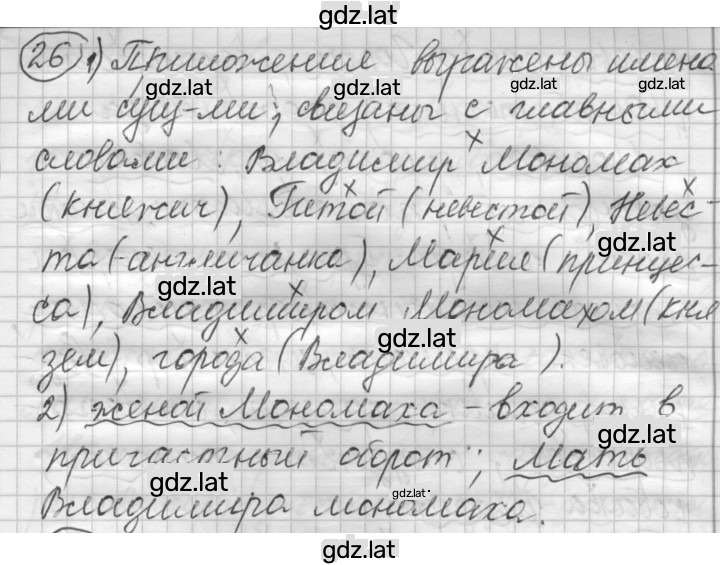 gdz.lat
26 1) Приложения выражены имена
gdz.lat gdz.lat gdz.lat gdz.lat
ми сущ-ми; связаны с главными
словами: Владимир Мономах
(княжич), Гитой (невестой), Невес-
gdz.lat
та (-англичанка), Мария (принцес-
gdz.lat
са), Владимиром Мономахом (кня
gdz.lat
зем), города (Владимира).
2) женой Мономаха - входит в
gdz.lat
причастный оборот; Мать
gdz.lat gdz.lat
Владимира мономаха.
gdz.lat